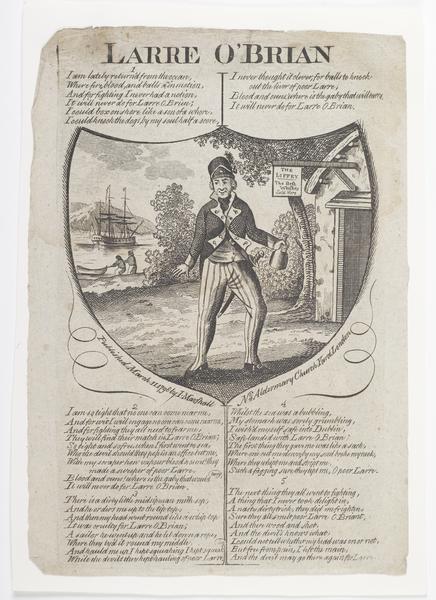 LARRE O'BRIAN
1
I am lately return'd from the ocean,
Where fire, blood, and balls
And for fighting I never had a notion,
It will never do for Larre O.Brian;
I could box on shore like a son of a whore,
I could knock the dogs by my soul half a score,
I never thought it clever, for balls to knock
out the liver of poor Larre;
Blood and ouns! where is the gaby that will
It will never do for Larre O.Brian.
THE
LIFFEY
The Best
Whiskey
Sold Here
Published March by I Marshall
No 4 Aldermary Church Yard London
2
I am so tight that no one can me,
And for I will engage no one can
And for fighting they did send for me,
They will find their match in Larre O.Brian;
So tight and so when I first went to sea,
Who the devil should they pop in an office but me,
With my scraper
made a sweeper of poor Larre;
Blood and ouns! where is the gaby that would
It will never do for Larre O.Brian.
3
There is a dirty little midshipman
And he orders me up to the top
And then my head went round like a whip top
It was cruelty for Larre O.Brian;
A sailor he went up and he let down a rope,
Where they ty'd it round my middle,
And hauled me up, I kept squeaking I kept
While the devils they kept hauling of poor Larre
4
Whilst the sea was a bubbling,
My stomach was sorely grumbling,
I wish'd myself safe into Dublin,
Safe landed with Larre O.Brian
The first thing they gave me was like a sack,
Where one out me down by my soul broke my neck,
Where they whipt me and stript me,
Such a flogging sure they gave me, O poor Larre.
5
The next thing they all went to fighting,
A thing that I never took delight in,
A nasty dirty trick, they did me frighten
Sure they all smelt poor Larre O.Brian;
And their wood and shot,
And the devil knows what
I could not tell whether my head was on or not,
But free from pain, I left the main,
And the devil may go there again for Larre.